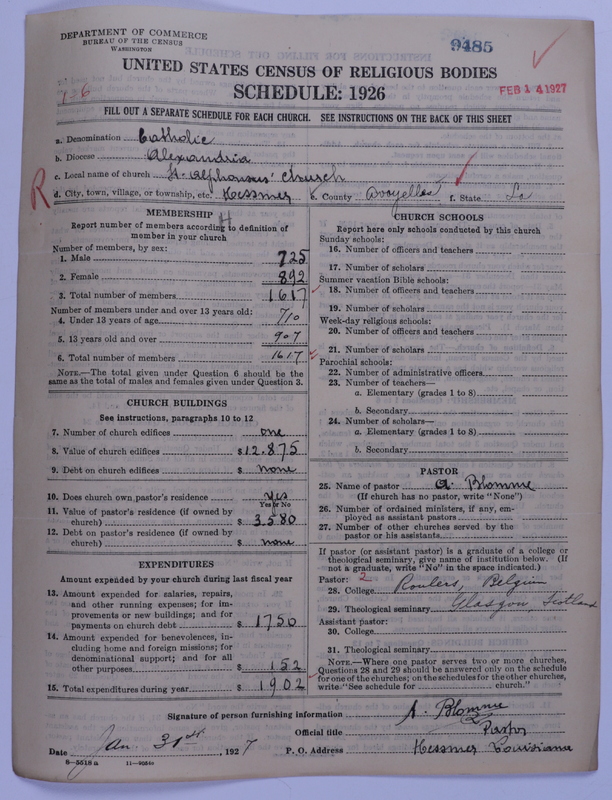 DEPARTMENT OF COMMERCE
BUREAU OF THE CENSUS
WASHINGTON
9485
UNITED STATES CENSUS OF RELIGIOUS BODIES
SCHEDULE: 1926
FEB 14 1927
126
FILL OUT A SEPARATE SCHEDULE FOR EACH CHURCH. SEE INSTRUCTIONS ON THE BACK OF THIS SHEET
a. Denomination Catholic
b. Diocese Alexandria
c. Local name of church St. Alphonsus' Church
d. City, town, village, or township, etc. Hessmer e. County Avoyelles f. State La
R
MEMBERSHIP
Report number of members according to definition of
member in your church
Number of members, by sex:
1. Male 725
2. Female 892
3. Total number of members 1617
Number of members under and over 13 years old:
4. Under 13 years of age 710
5. 13 years old and over 907
6. Total number of members 1617
NOTE.—The total given under Question 6 should be
same as the total of males and females given under Question 3.
CHURCH BUILDINGS
See instructions, paragraphs 10 to 12
7. Number of church edifices one
8. Value of church edifices $12.875
9. Debt on church edifices $ none
10. Does church own pastor's residence yes
Yes or No
11. Value of pastor's residence (if owned by
church) $ 3.580
12. Debt on pastor's residence (if owned by
church) $ none
EXPENDITURES
Amount expended by your church during last fiscal year
13. Amount expended for salaries, repairs,
and other running expenses; for im-
provements or new buildings; and for
payments on church debt $ 1750
14. Amount expended for benevolences, in-
cluding home and foreign missions; for
denominational support; and for all
other purposes $ 152
15. Total expenditures during year $ 1902
CHURCH SCHOOLS
Report here only schools conducted by this church
Sunday schools:
16. Number of officers and teachers
17. Number of scholars
Summer vacation Bible schools:
18. Number of officers and teachers
19. Number of scholars
Week-day religious schools:
20. Number of officers and teachers
21. Number of scholars
Parochial schools:
22. Number of administrative officers
23. Number of teachers—
a. Elementary (grades 1 to 8)
b. Secondary
24. Number of scholars—
a. Elementary (grades 1 to 8)
b. Secondary
PASTOR
25. Name of pastor A. Blomme
(If church has no pastor, write "None")
26. Number of ordained ministers, if any, em-
ployed as assistant pastors
27. Number of other churches served by the
pastor or his assistants
If pastor (or assistant pastor) is a graduate of a college or
theological seminary, give name of institution below. (If
not a graduate, write "No" in the space indicated.)
Pastor: 2
28. College Roulers, Belgium
29. Theological seminary Glasgow Scotland
Assistant pastor:
30. College
31. Theological seminary
NOTE.—Where one pastor serves two or more churches,
Questions 28 and 29 should be answered only on the schedule
for one of the churches; on the schedules for the other churches,
write: "See schedule for church."
Signature of person furnishing information A. Blomme
Official title Pastor
Date Jan. 31st, 1927 P. O. Address Hessmer Louisiana
8—5518a 11—9034e